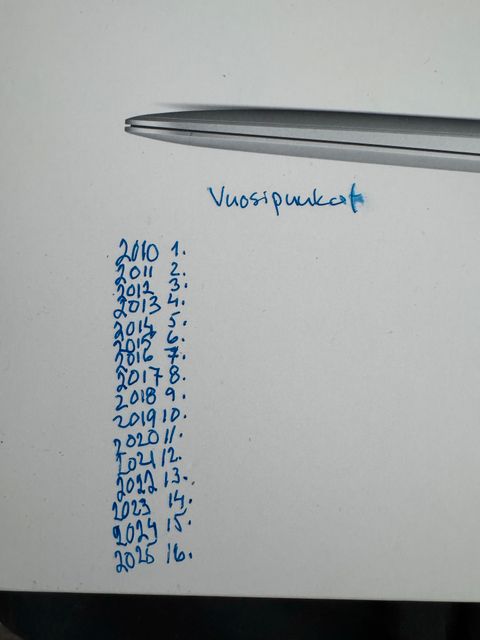 Vuosipuukot
2010 1.
2011 2.
2012 3.
2013 4.
2014 5.
2015 6.
2016 7.
2017 8.
2018 9.
2019 10.
2020 11.
2021 12.
2022 13.
2023 14.
2024 15.
2025 16.